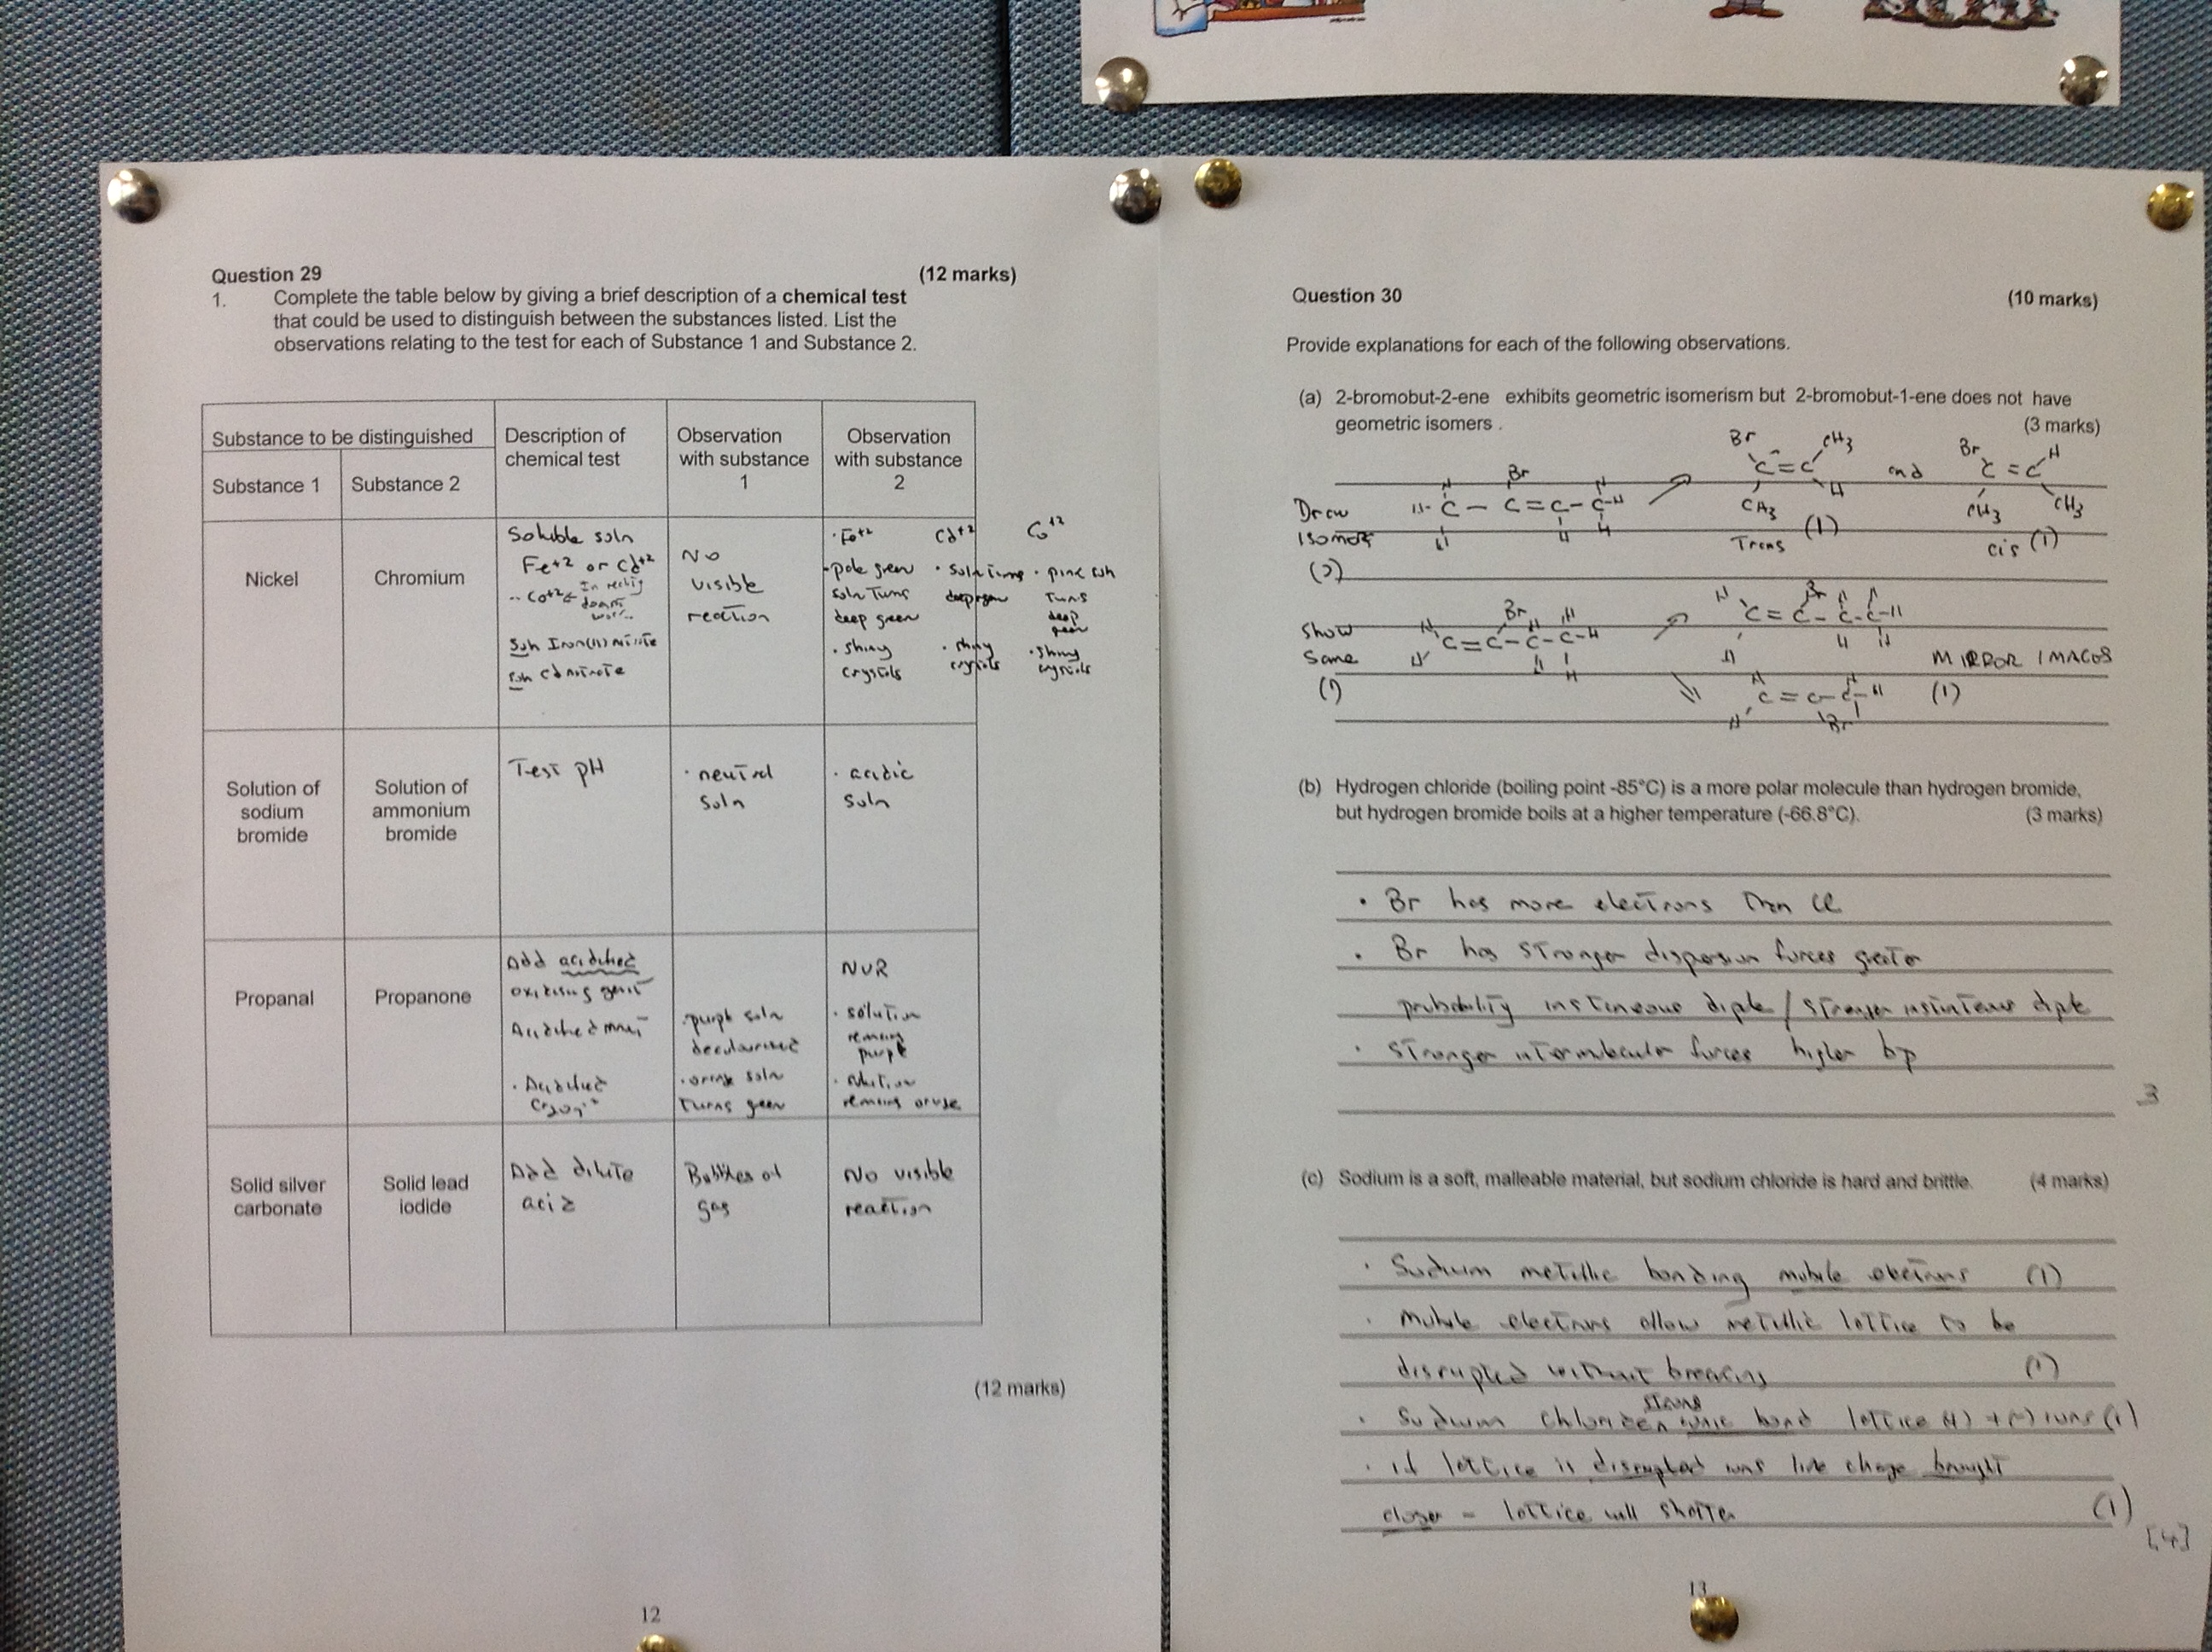 Question 29 (12 marks)
1. Complete the table below by giving a brief description of a chemical test
that could be used to distinguish between the substances listed. List the
observations relating to the test for each of Substance 1 and Substance 2.
Substance to be distinguished
Substance 1
Substance 2
Description of
chemical test
Observation
with substance
1
Observation
with substance
2
Nickel
Chromium
Soluble soln
Fe+2 or Cd+2
Co+2
Soln Iron(II) nitrate
soln Cd nitrate
No
visible
reaction
· Fe+2
· pale green
soln Turns
deep green
· shiny
crystals
Cd+2
· soln Turns
deep green
· shiny
crystals
Co+2
· pink soln
Turns
deep
green
· shiny
crystals
Solution of
sodium
bromide
Solution of
ammonium
bromide
Test pH
· neutral
soln
· acidic
soln
Propanal
Propanone
Add acidified
oxidising agent
Acidified MnO4-
· Acidified
Cr2O7-2
· purple soln
decolourised
· orange soln
Turns green
NVR
· solution
remains
purple
· solution
remains orange
Solid silver
carbonate
Solid lead
iodide
Add dilute
acid
Bubbles of
gas
No visible
reaction
(12 marks)
12
Question 30 (10 marks)
Provide explanations for each of the following observations.
(a) 2-bromobut-2-ene exhibits geometric isomerism but 2-bromobut-1-ene does not have
geometric isomers . (3 marks)
Br CH3 Br H
C=C and C=C
CH3 H CH3 CH3
Draw
Isomers
(2)
H Br H
H-C-C=C-C-H
H H H
Trans (1)
cis (1)
Show
Same
(1)
H Br H H
C=C-C-C-H
H H H
MIRROR IMAGES
(1)
(b) Hydrogen chloride (boiling point -85°C) is a more polar molecule than hydrogen bromide,
but hydrogen bromide boils at a higher temperature (-66.8°C). (3 marks)
· Br has more electrons Than Cl
· Br has stronger dispersion forces greater
probability instaneous diple / stronger instanteous diple
· stronger intermolecular forces higher bp
3
(c) Sodium is a soft, malleable material, but sodium chloride is hard and brittle. (4 marks)
· Sodium metallic bonding mobile electrons (1)
· Mobile electrons allow metallic lattice to be
disrupted without breaking (1)
· Sodium chloride strong ionic bond lattice (+) + (-) ions (1)
· if lattice is disrupted ions like charge brought
closer - lattice will shatter (1)
[4]
13